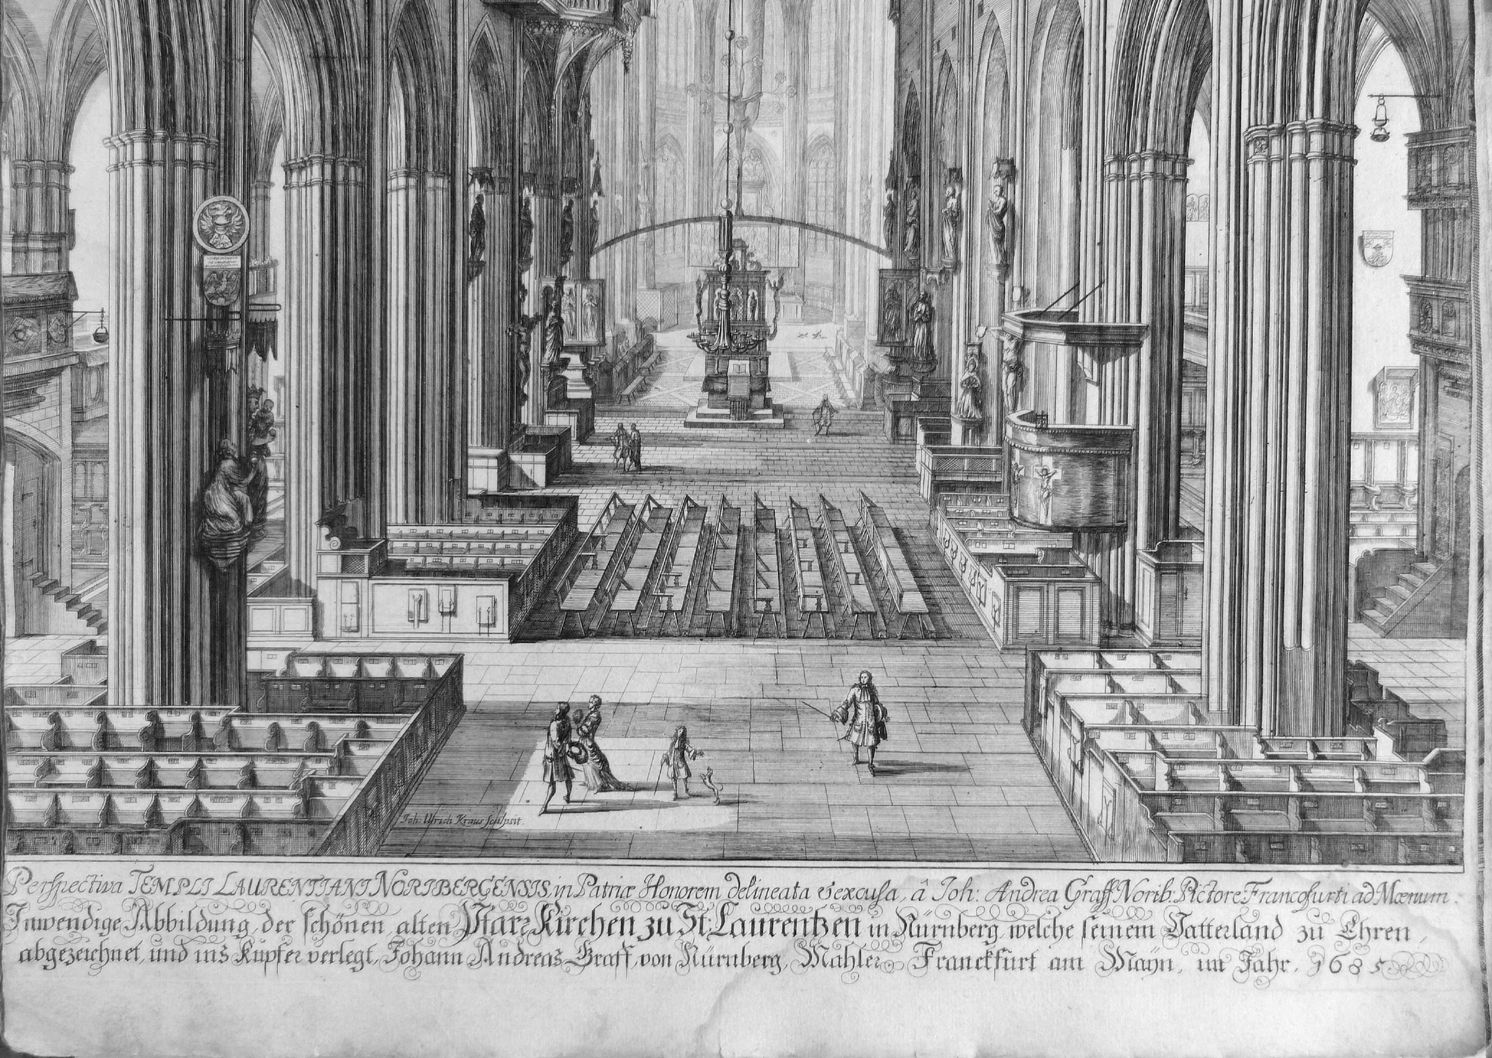 Joh: Ulrich Kraus sculpsit.
Perspectiva TEMPLI LAURENTIANI NORIBERGENSIS in Patriæ Honorem delineata & excusa, â Joh: Andrea Graff Norib: Pictore Francofurti ad Mœnum:
Inwendige Abbildung der schönen alten Pfarr Kirchen zu St: Laurentzen in Nürnberg, welche seinem Vatterland zu Ehren,
abgezeichnet, und ins Kupfer verlegt, Johann Andreas Graff, von Nürnberg, Mahler, Franckfurt am Mayn, im Jahr, 1685